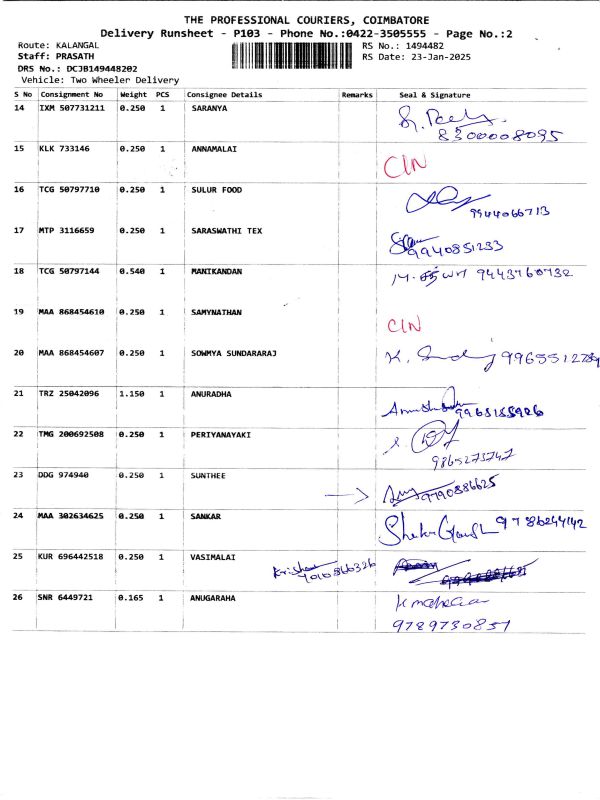 THE PROFESSIONAL COURIERS, COIMBATORE
Delivery Runsheet - P103 - Phone No.:0422-3505555 - Page No.:2
Route: KALANGAL
RS No.: 1494482
Staff: PRASATH
RS Date: 23-Jan-2025
DRS No.: DCJB149448202
Vehicle: Two Wheeler Delivery
S No Consignment No Weight PCS Consignee Details Remarks Seal & Signature
14 IXM 507731211 0.250 1 SARANYA
8300008095
15 KLK 733146 0.250 1 ANNAMALAI
CIN
16 TCG 50797710 0.250 1 SULUR FOOD
9944066713
17 MTP 3116659 0.250 1 SARASWATHI TEX
9940851233
18 TCG 50797144 0.540 1 MANIKANDAN 9443760732
19 MAA 868454610 0.250 1 SAMYNATHAN
CIN
20 MAA 868454607 0.250 1 SOWMYA SUNDARARAJ
21 TRZ 25042096 1.150 1 ANURADHA
22 TMG 200692508 0.250 1 PERIYANAYAKI
9865273747
23 DDG 974940 0.250 1 SUNTHEE
9790886625
24 MAA 302634625 0.250 1 SANKAR
9786244142
25 KUR 696442518 0.250 1 VASIMALAI
26 SNR 6449721 0.165 1 ANUGARAHA
9789730857